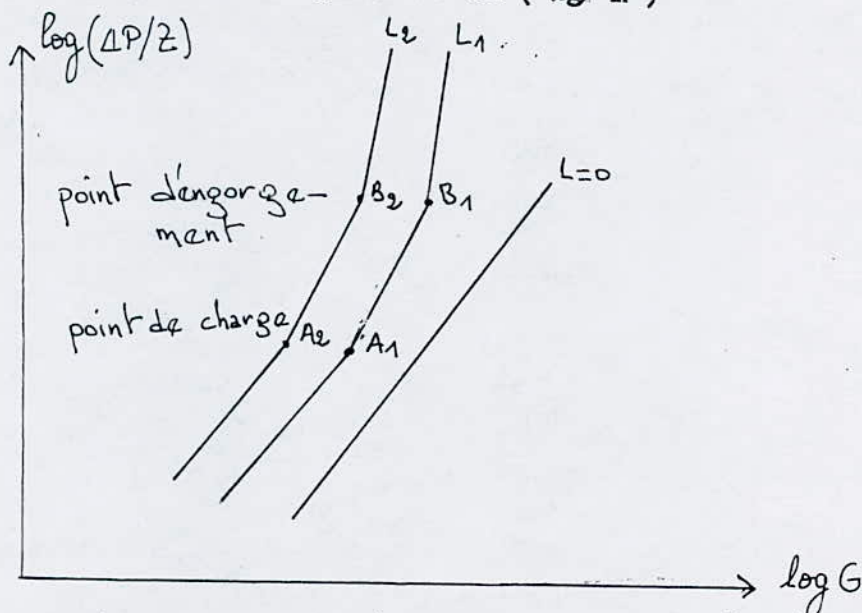 log(ΔP/Z)
L2
L1
L=0
point d'engorge-
ment
B2
B1
point de charge
A2
A1
log G